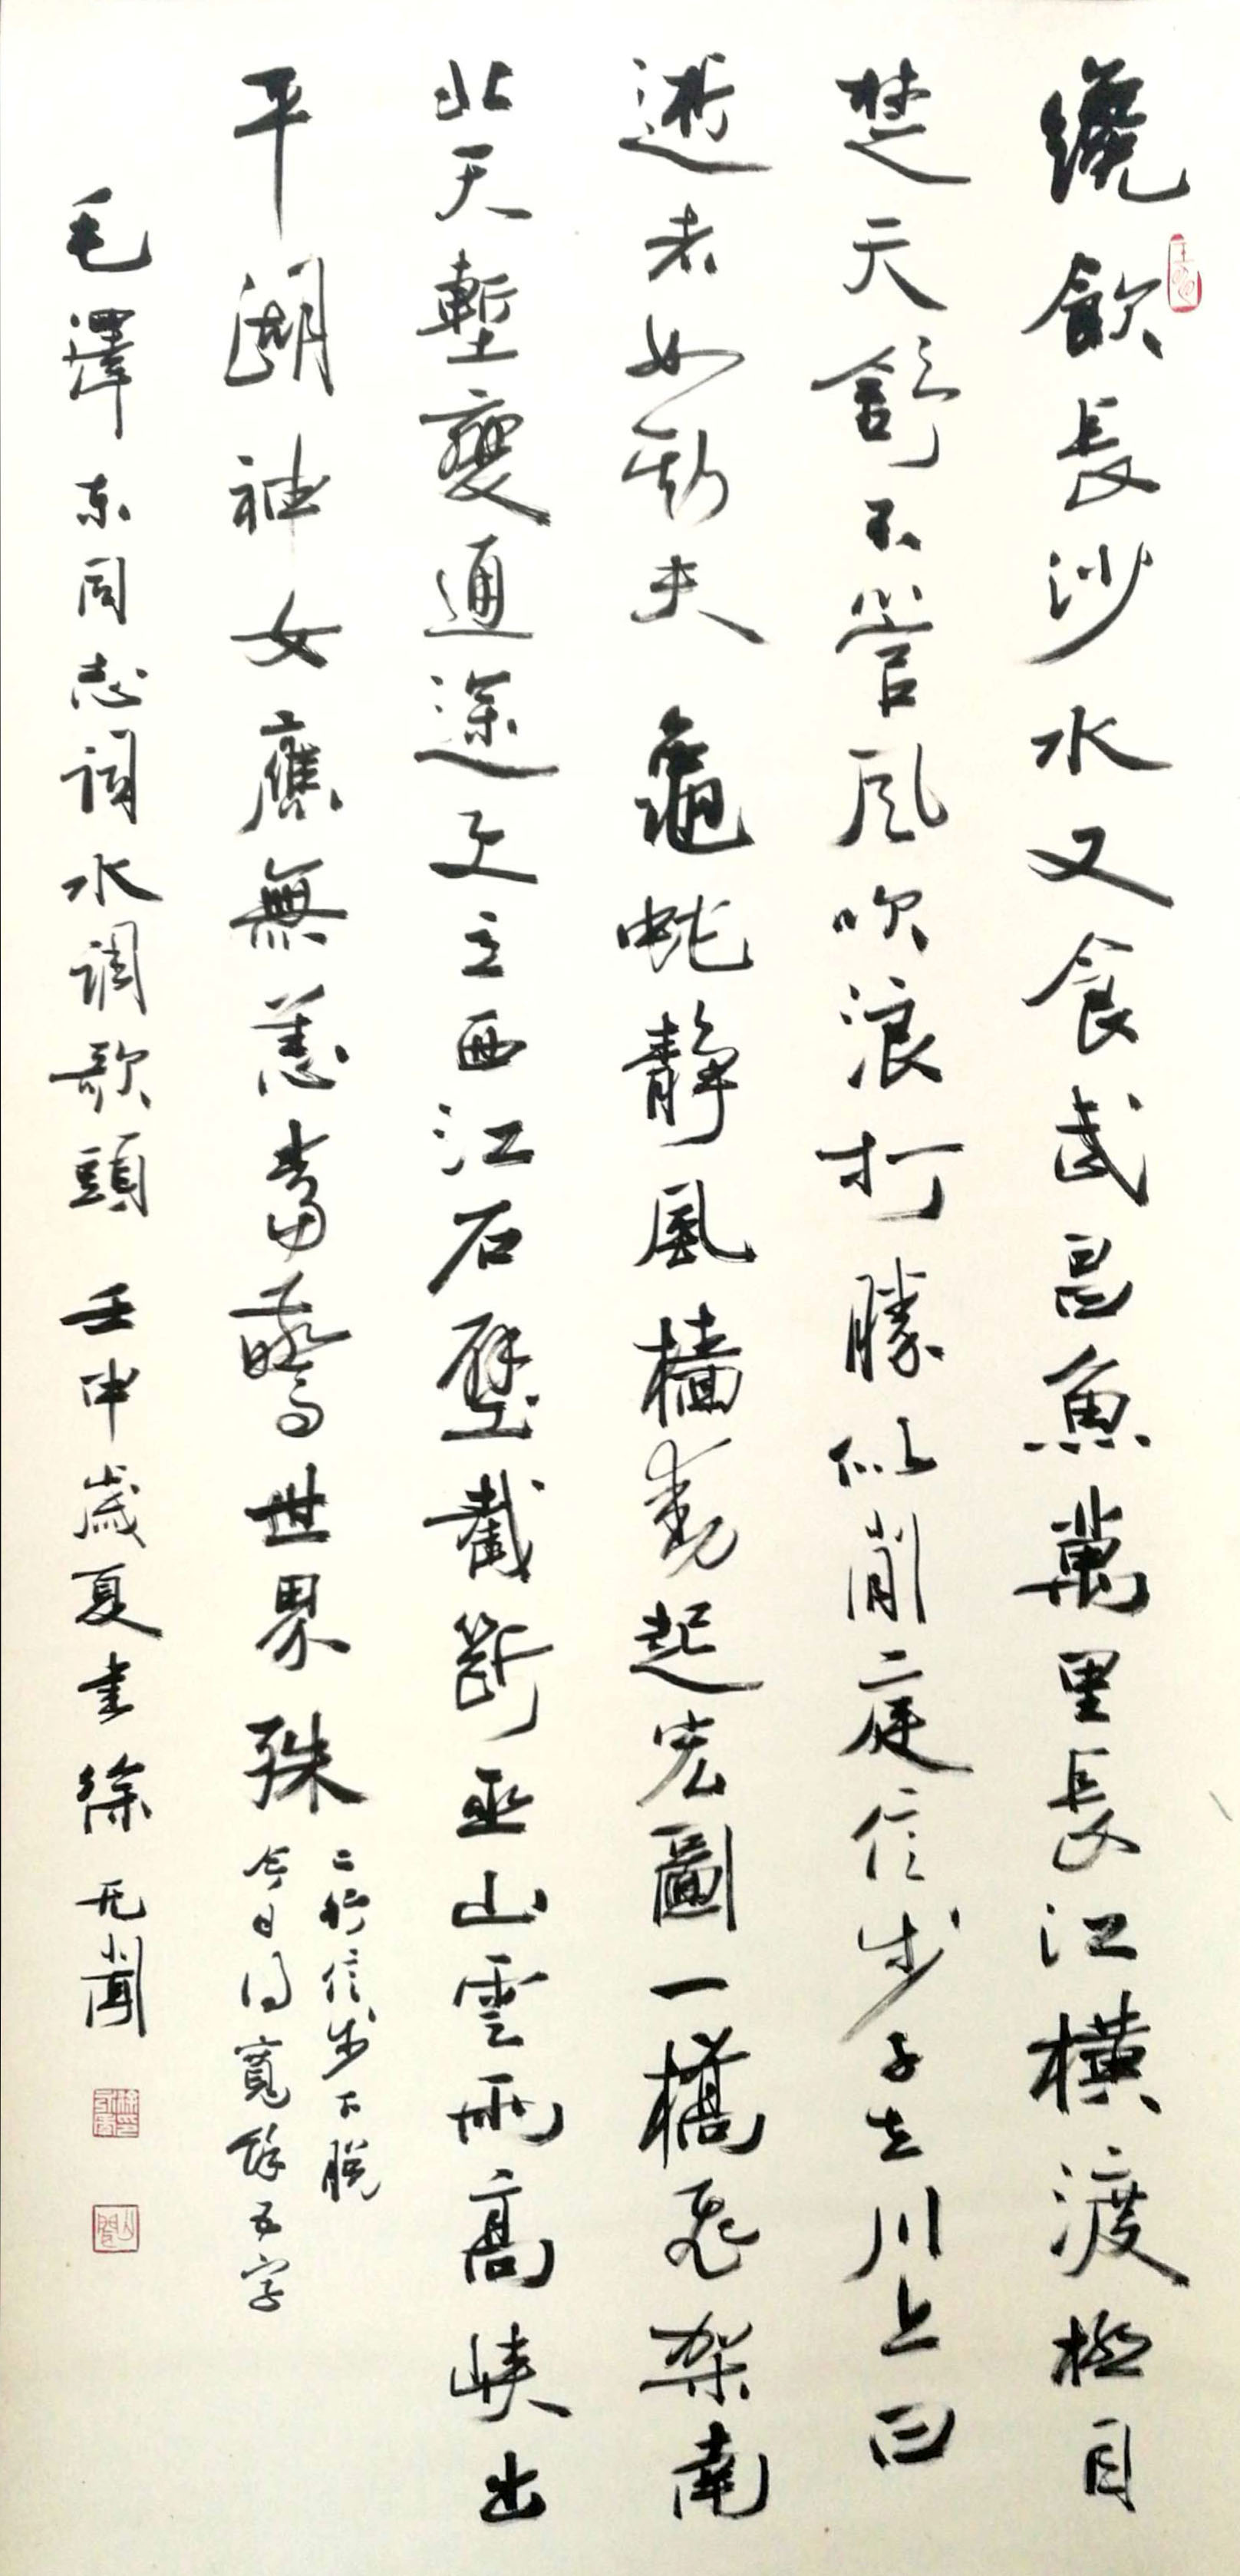 纔飲長沙水又食武昌魚萬里長江橫渡極目
楚天舒不管風吹浪打勝似閒庭信步子在川上曰
逝者如斯夫 龜蛇靜風檣動起宏圖一橋飛架南
北天塹變通途更立西江石壁截斷巫山雲雨高峽出
平湖神女應無恙當驚世界殊
二行信步下脱
今日得寬餘五字
毛澤东同志词水调歌頭 壬申歲夏書徐无聞